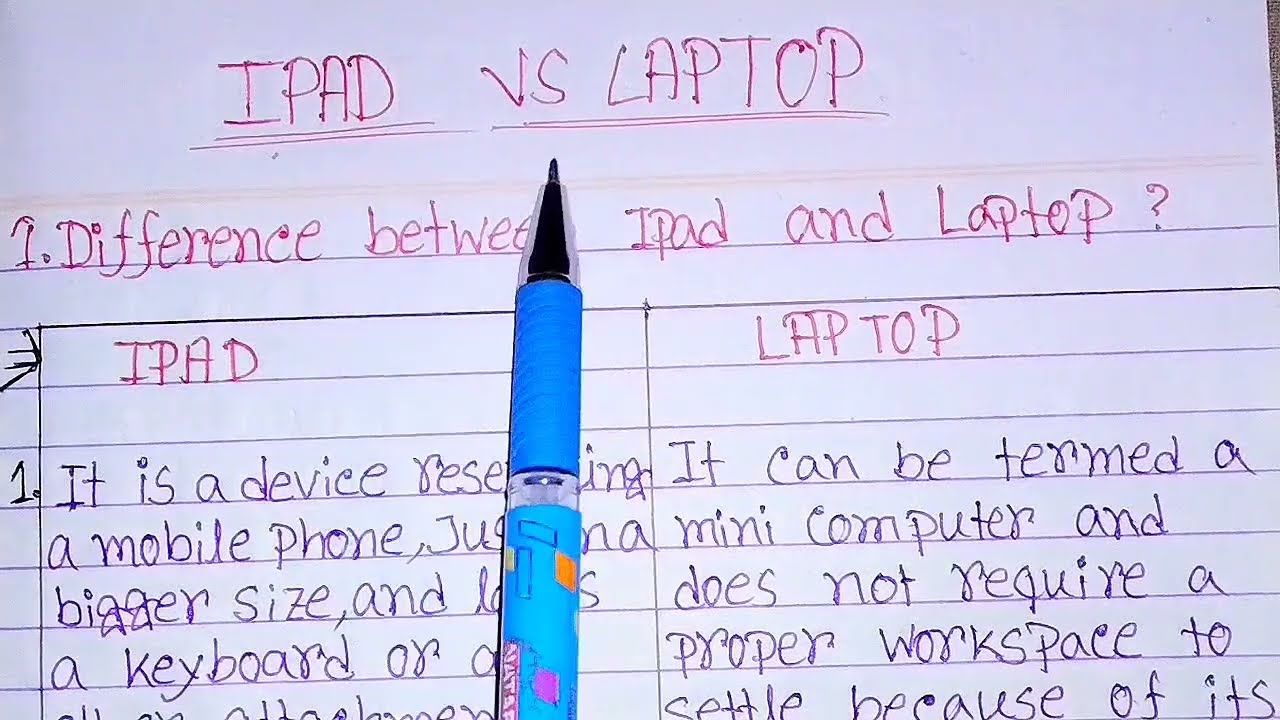 IPAD VS LAPTOP
1. Difference betwee Ipad and Laptop ?
IPAD
LAPTOP
1. It is a device rese ing
a mobile phone, Jus in a
bigger size, and l s
a keyboard or a
all an attachmen
It can be termed a
mini computer and
does not require a
proper workspace to
settle because of its